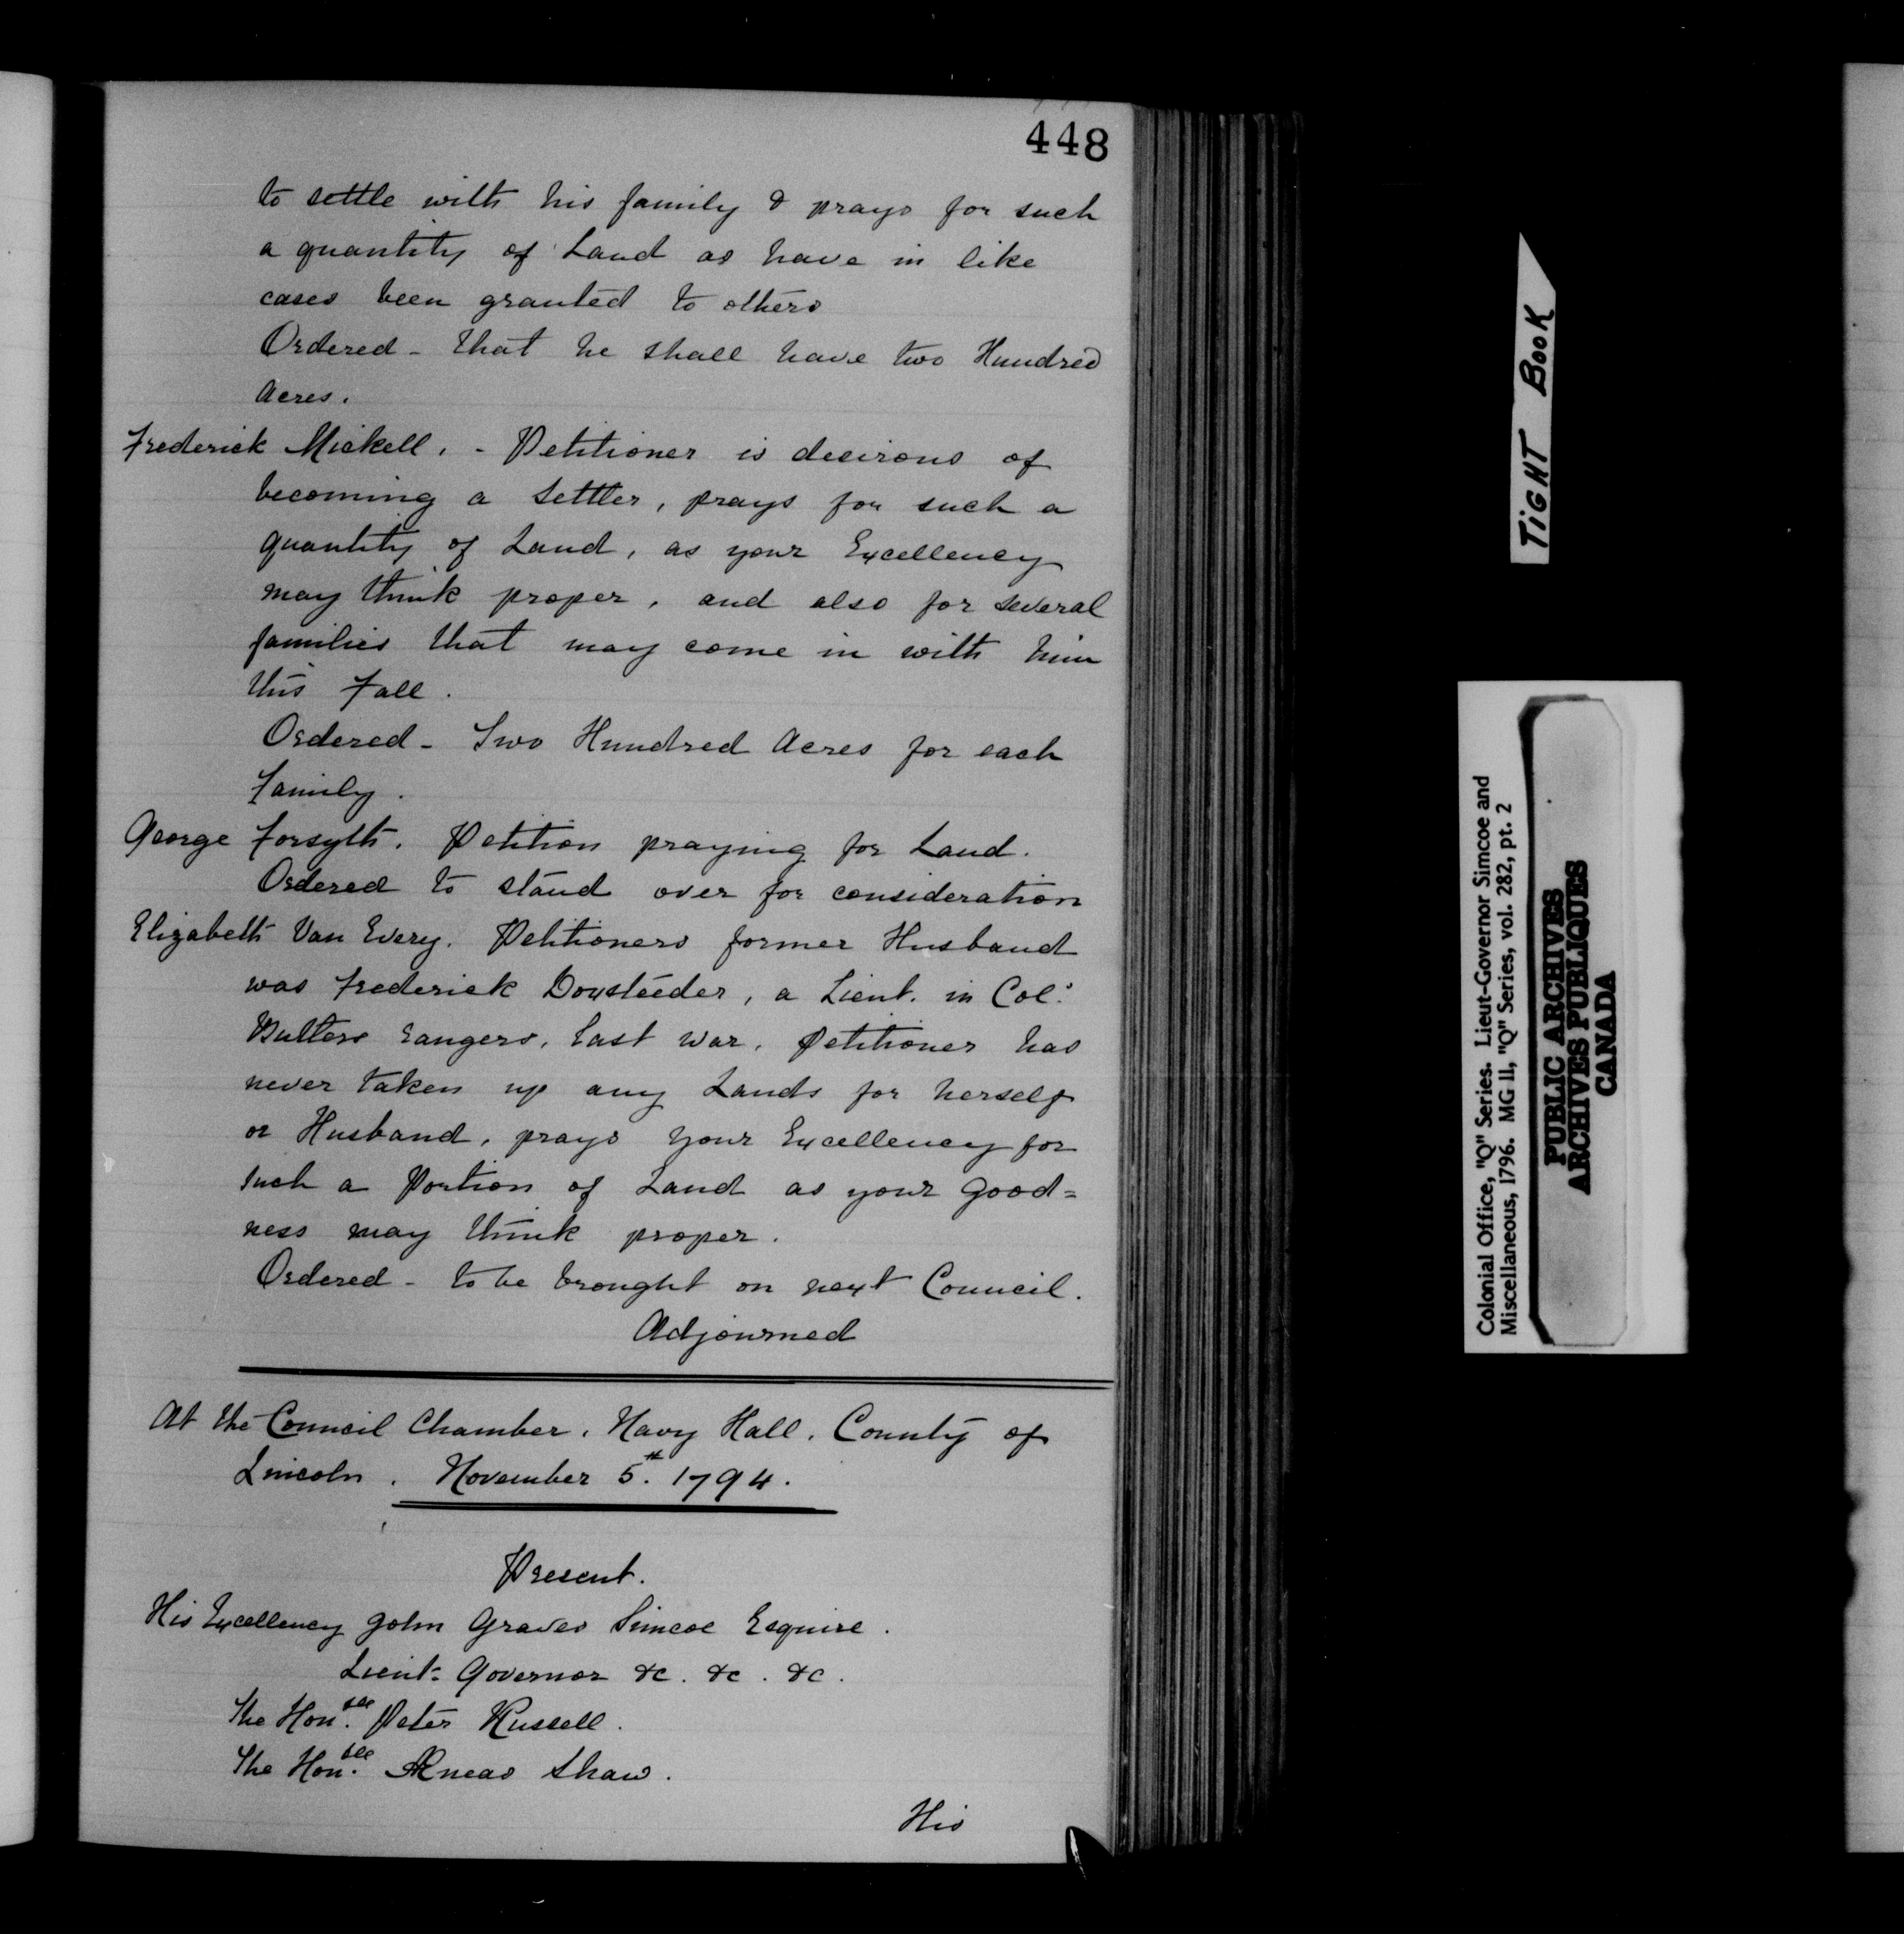 448
to settle with his family & prays for such
a quantity of Land as have in like
cases been granted to others
Ordered - that he shall have two Hundred
Acres.
Frederick Mickell. - Petitioner is decirous of
becoming a Settler, prays for such a
quantity of Land, as your Excellency
may think proper, and also for several
families that may come in with him
this Fall.
Ordered - Two Hundred Acres for each
Family.
George Forsyth. Petition praying for Land.
Ordered to stand over for consideration
Elizabeth Van Every. Petitioners former Husband
was Frederick Doxsteeder, a Lieut. in Col.
Butlers rangers, Last War, Petitioner has
never taken up any Lands for herself
or Husband, prays your Excellency for
such a Portion of Land as your Good=
ness may think proper.
Ordered - to be brought on next Council.
Adjourned
At the Council Chamber, Navy Hall, County of
Lincoln. November 5th. 1794.
Present.
His Excellency John Graves Simcoe Esquire.
Lieut. Governor &c. &c. &c.
The Honble. Peter Russell.
The Honble. Æneas Shaw.
His
TIGHT BOOK
Colonial Office, "Q" Series. Lieut-Governor Simcoe and
Miscellaneous, 1796. MG 11, "Q" Series, vol. 282, pt. 2
PUBLIC ARCHIVES
ARCHIVES PUBLIQUES
CANADA